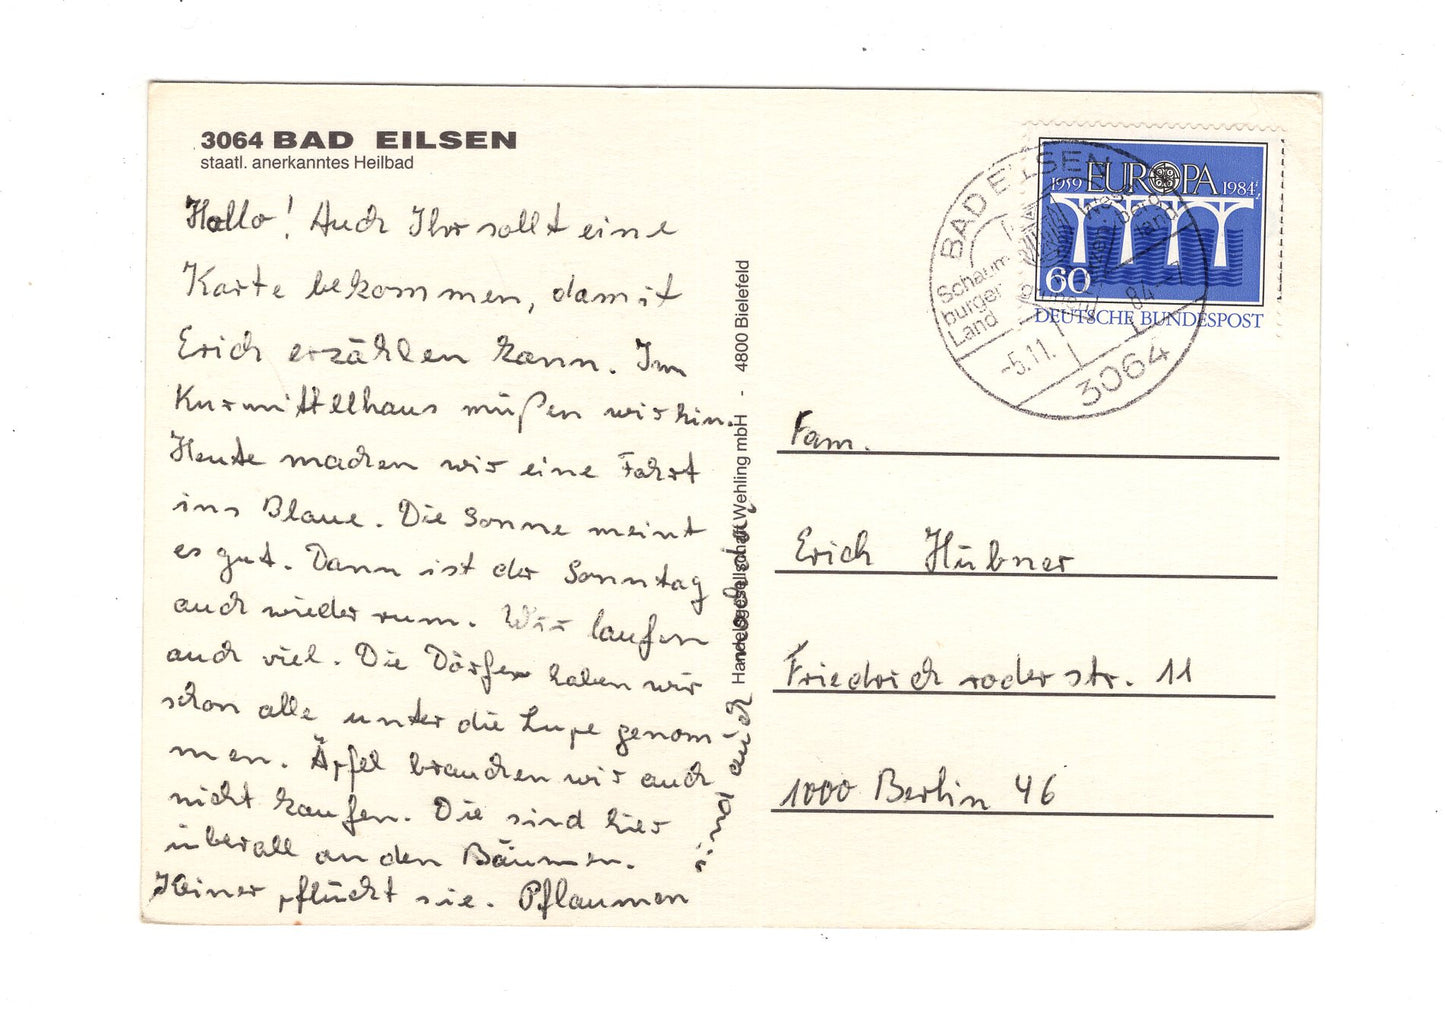 3064 BAD EILSEN
staatl. anerkanntes Heilbad
Hallo! Auch Ihr sollt eine
Karte bekommen, damit
Erich erzählen kann. Im
Kurmittelhaus müßen wir hin.
Heute machen wir eine Fahrt
ins Blaue. Die Sonne meint
es gut. Dann ist der Sonntag
auch wieder rum. Wir laufen
auch viel. Die Dörfer haben wir
schon alle unter die Lupe genom-
men. Äpfel brauchen wir auch
nicht kaufen. Die sind hier
überall an den Bäumen.
Heiner pflückt sie. Pflaumen
sind auch
Handelsgesellschaft Wehling mbH - 4800 Bielefeld
EUROPA
1959 1984
60
DEUTSCHE BUNDESPOST
BAD EILSEN
Schaum
burger
Land
-5.11.
84 - 7
3064
Fam.
Erich Hübner
Friedrichroderstr. 11
1000 Berlin 46